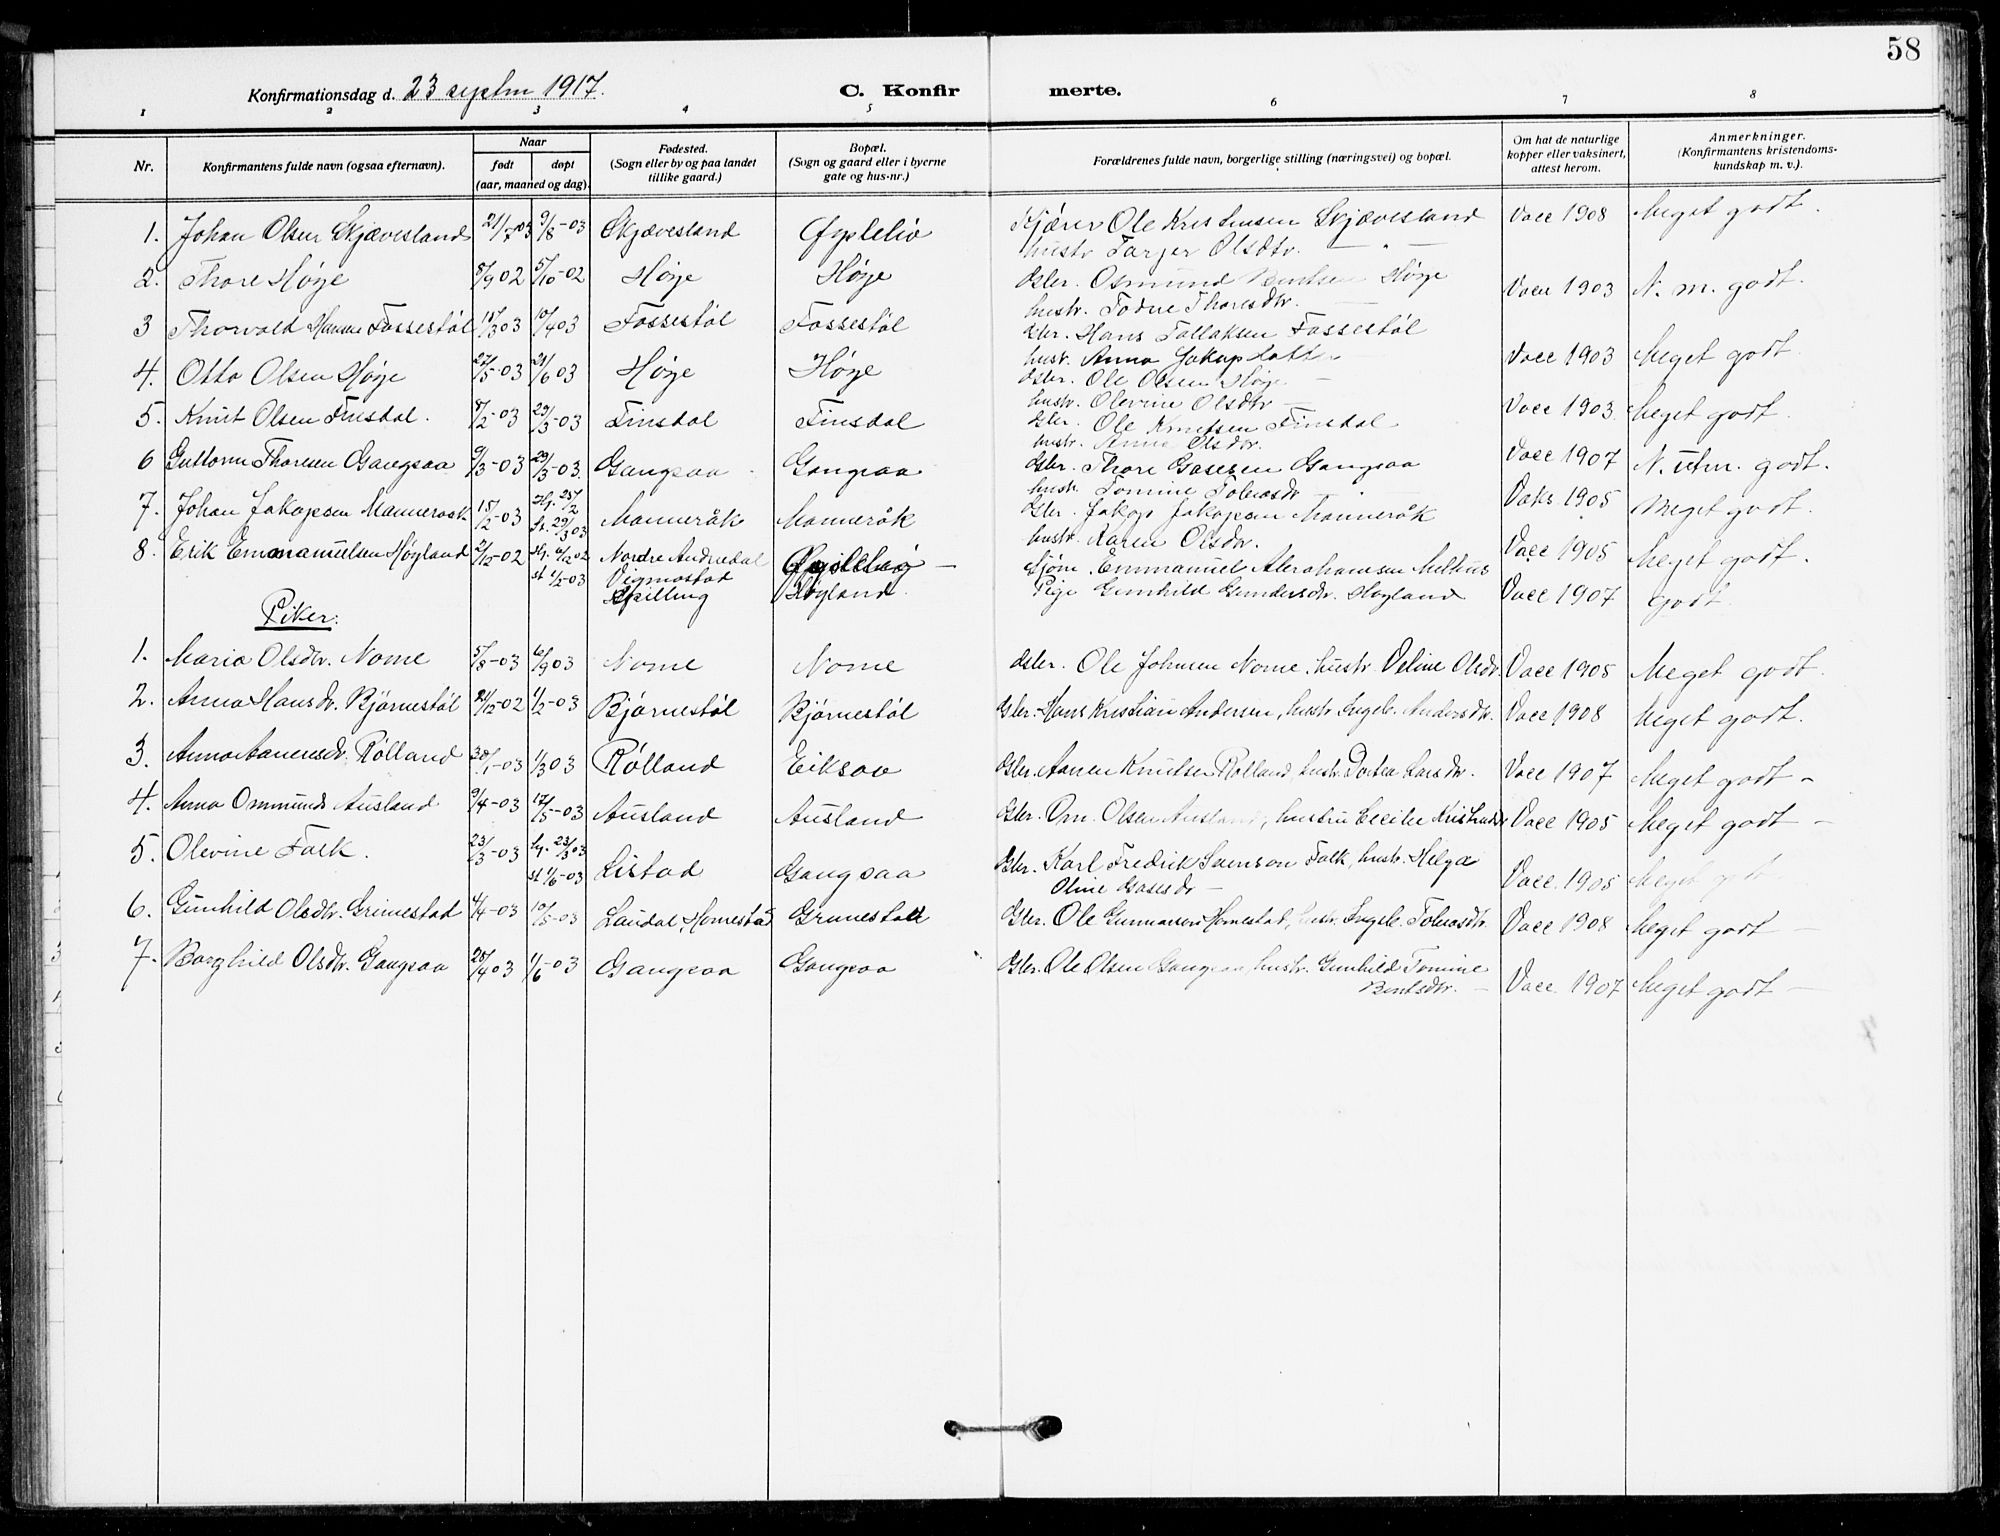 58
Konfirmationsdag d. 23 septbr 1917. C. Konfir merte.
1 2 3 4 5 6 7 8
Nr. Konfirmantens fulde navn (ogsaa efternavn). Naar født døpt (aar, maaned og dag). Fødested. (Sogn eller by og paa landet tillike gaard.) Bopæl. (Sogn og gaard eller i byerne gate og hus-nr.) Forældrenes fulde navn, borgerlige stilling (næringsvei) og bopæl. Om hat de naturlige kopper eller vaksinert, attest herom. Anmerkninger. (Konfirmantens kristendoms- kundskap m. v.).
1. Johan Olsen Skjævesland 21/7-03 9/8-03 Skjævesland Øyslebø Kjører Ole Kristensen Skjævesland Vacc 1908 Meget godt.
hustr Tarjer Olsdtr. — " —
2. Thore Høye 8/9 02 5/10-02 Høye Høye Gbr. Osmund Bentsen Høye Vacc 1903 N. m. godt.
hustr. Todne Thoresdtr. —
3 Thorvald Hansen Fossestøl 15/3 03 10/4 03 Fossestøl Fossestøl Gbr. Hans Tallaksen Fossestøl Vacc 1903 Meget godt
hustr. Anna Jakopsdatt
4. Otto Olsen Høye 27/5-03 21/6 03 Høye Høye Gbr. Ole Olsen Høye Vacc 1903 Meget godt.
hustr. Olevine Olsdtr —
5. Knut Olsen Finsdal. 8/2-03 29/3-03 Finsdal Finsdal Gbr. Ole Knutsen Finsdal Vacc 1907 N. utm. godt.
hustr. Anne Olsdtr.
6 Guttorm Thoresen Gangsaa 9/3-03 29/3-03. Gangsaa Gangsaa Gbr. Thore Gasesen Gangsaa Vaks. 1905 Meget godt.
hustr. Tomine Tobiasdr — " —
7. Johan Jakopsen Manneraak 15/2-03 Hj. 25/2 st. 29/3 03 Manneråk Manneråk Gbr. Jakop Jakopsen Manneråk Vacc 1905 Meget godt.
hustr. Karen Olsdtr.
8. Erik Emmanuelsen Høyland 2/12-02 Hj. 6/12 02 st 1/2-03 Nordre Audnedal Vigmostad Spilling Øyslebø — Høyland. Sjøm. Emmanuel Abrahamsen Melhus Vacc 1907 godt.
Pige Gunhild Gundersdtr. Høyland
Piker:
1. Maria Olsdtr. Nome 5/8-03 6/9 03 Nome Nome Gbr. Ole Johnsen Nome, hustr Veline Olsdtr Vacc 1905 Meget godt.
2. Anna Hansdtr. Bjørnestøl 21/12-02 1/2-03 Bjørnestøl Bjørnestøl Gbr. Hans Kristian Andersen, hustr. Ingeb. Andersdtr. Vacc 1908 Meget godt.
3. Anna Aanensdtr. Rølland 30/1-03 1/3 03 Rølland Eiksaa Gbr. Aanen Knutsen Rølland, hustr. Dortea Larsdtr. Vacc 1907 Meget godt —
4. Anna Ommunds Ausland 9/4-03 17/5-03 Ausland Ausland Gbr. Om. Olsen Ausland, hustru Cecilie Vacc 1905 Meget godt —
5. Olevine Falk. 23/3-03 hj. 23/3 03 st 1/6-03 Listad Gangsaa Gbr. Karl Fredrik Svenson Falk, hustr. Helga Oline Gasesdr — Vacc. 1905 Meget godt
6. Gunhild Olsdtr. Grimestad 4/4-03 10/5-03 Laudal, Homestad Grimestad Gbr. Ole Gunnarsen Homestad, hustr. Ingeb. Tobiasdtr. Vacc 1908 Meget godt —
7. Borghild Olsdtr. Gangsaa 25/4 03 1/6-03 Gangsaa Gangsaa Gbr. Ole Olsen Gangsaa, hustr. Gunhild Tomine Bentsdtr. — Vacc 1907 Meget godt —